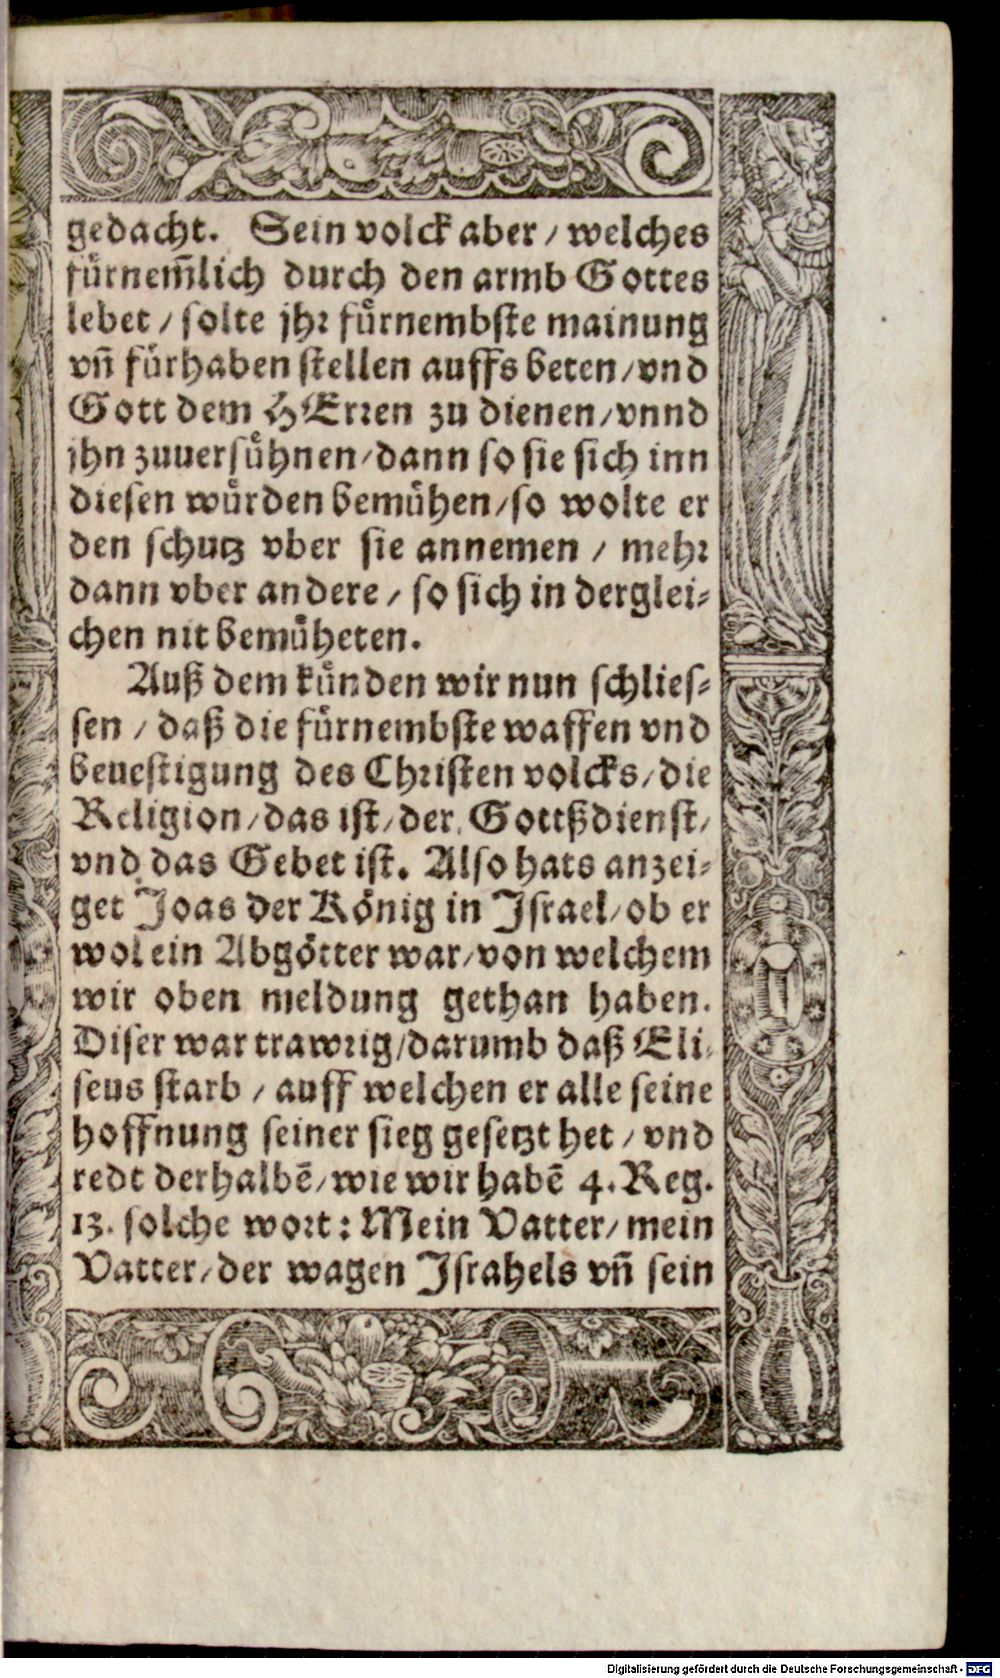 gedacht. Sein volck aber / welches
fürnem̃lich durch den armb Gottes
lebet / solte jhr fürnembste mainung
vñ fürhaben stellen auffs beten / vnd
Gott dem HErren zu dienen / vnnd
jhn zuuersühnen / dann so sie sich inn
diesen würden bemühen / so wolte er
den schutz vber sie annemen / mehr
dann vber andere / so sich in derglei-
chen nit bemüheten.
Auß dem künden wir nun schlies-
sen / daß die fürnembste waffen vnd
beuestigung des Christen volcks / die
Religion / das ist / der Gottßdienst /
vnd das Gebet ist. Also hats anzei-
get Joas der König in Jsrael / ob er
wol ein Abgötter war / von welchem
wir oben meldung gethan haben.
Diser war trawrig / darumb daß Eli-
seus starb / auff welchen er alle seine
hoffnung seiner sieg gesetzt het / vnd
redt derhalbẽ / wie wir habẽ 4. Reg.
13. solche wort: Mein Vatter / mein
Vatter / der wagen Jsrahels vñ sein
Digitalisierung gefördert durch die Deutsche Forschungsgemeinschaft - DFG